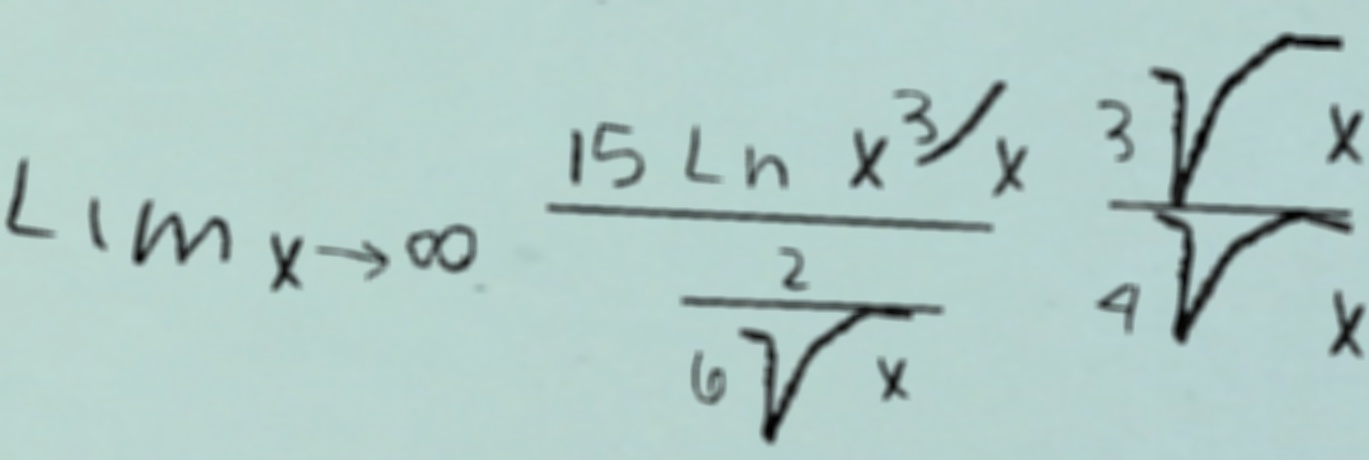 Lim x→∞ 15 Ln x³/x / 2/6√x 3√x / 4√x